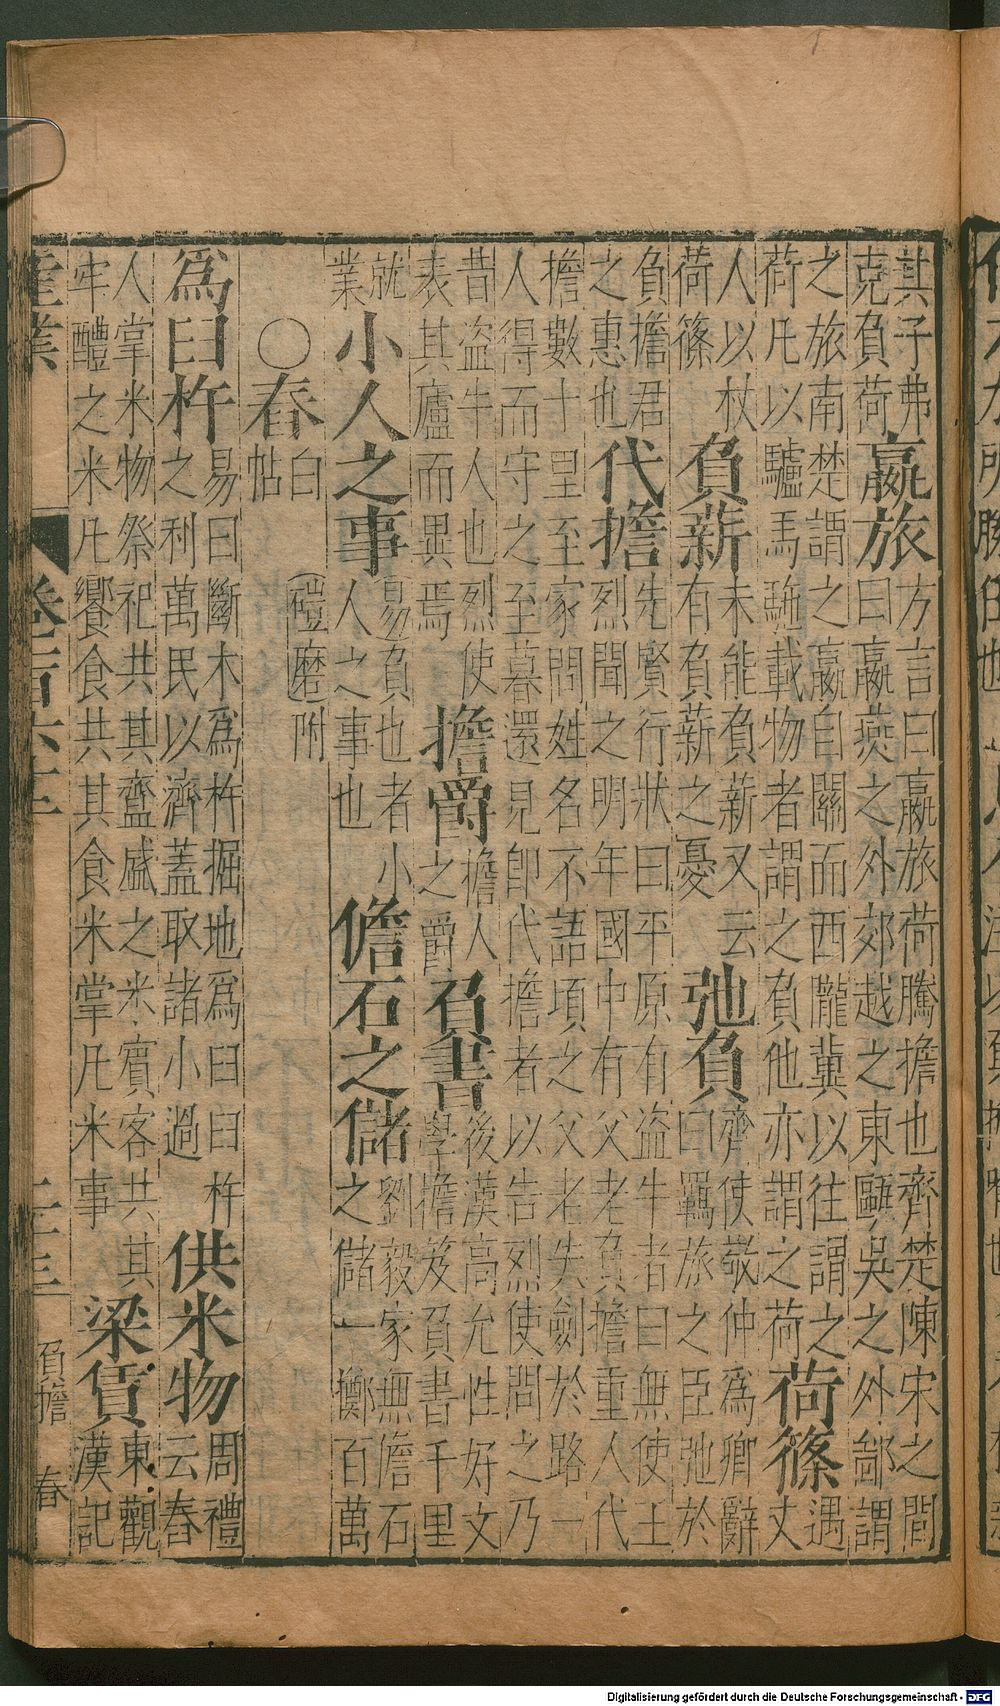 其子弗
克負荷
嬴旅
方言曰嬴旅荷騰擔也齊楚陳宋之間
曰嬴燕之外郊越之東甌吳之外鄙謂
之旅南楚謂之嬴自關而西隴冀以往謂之
荷凡以驢馬馲載物者謂之負他亦謂之荷
荷篠
遇
丈
人以杖
荷篠
負薪
未能負薪又云
有負薪之憂
弛負
齊使敬仲為卿辭
曰羈旅之臣弛於
負擔君
之惠也
代擔
先賢行狀曰平原有盜牛者曰無使王
烈聞之明年國中有父老負擔重人代
擔數十里至家問姓名不語頃之父老失劍於路一
人得而守之至暮還見即代擔者以告烈使問之乃
昔盜牛人也烈使
表其廬而異焉
擔爵
擔人
之爵
負書
後漢高允性好文
學擔笈負書千里
就
業
小人之事
易負也者小
人之事也
儋石之儲
劉毅家無儋石
之儲一擲百萬
○舂
白
帖
磑磨附
爲臼杵
易曰斷木爲杵掘地爲臼臼杵
之利萬民以濟蓋取諸小過
供米物
周禮
云舂
人掌米物祭祀共其齍盛之米賓客共其
牢醴之米凡饗食共其食米掌凡米事
梁賃
東觀
漢記
產業
二十三
負擔
舂
Digitalisierung gefördert durch die Deutsche Forschungsgemeinschaft - DFG